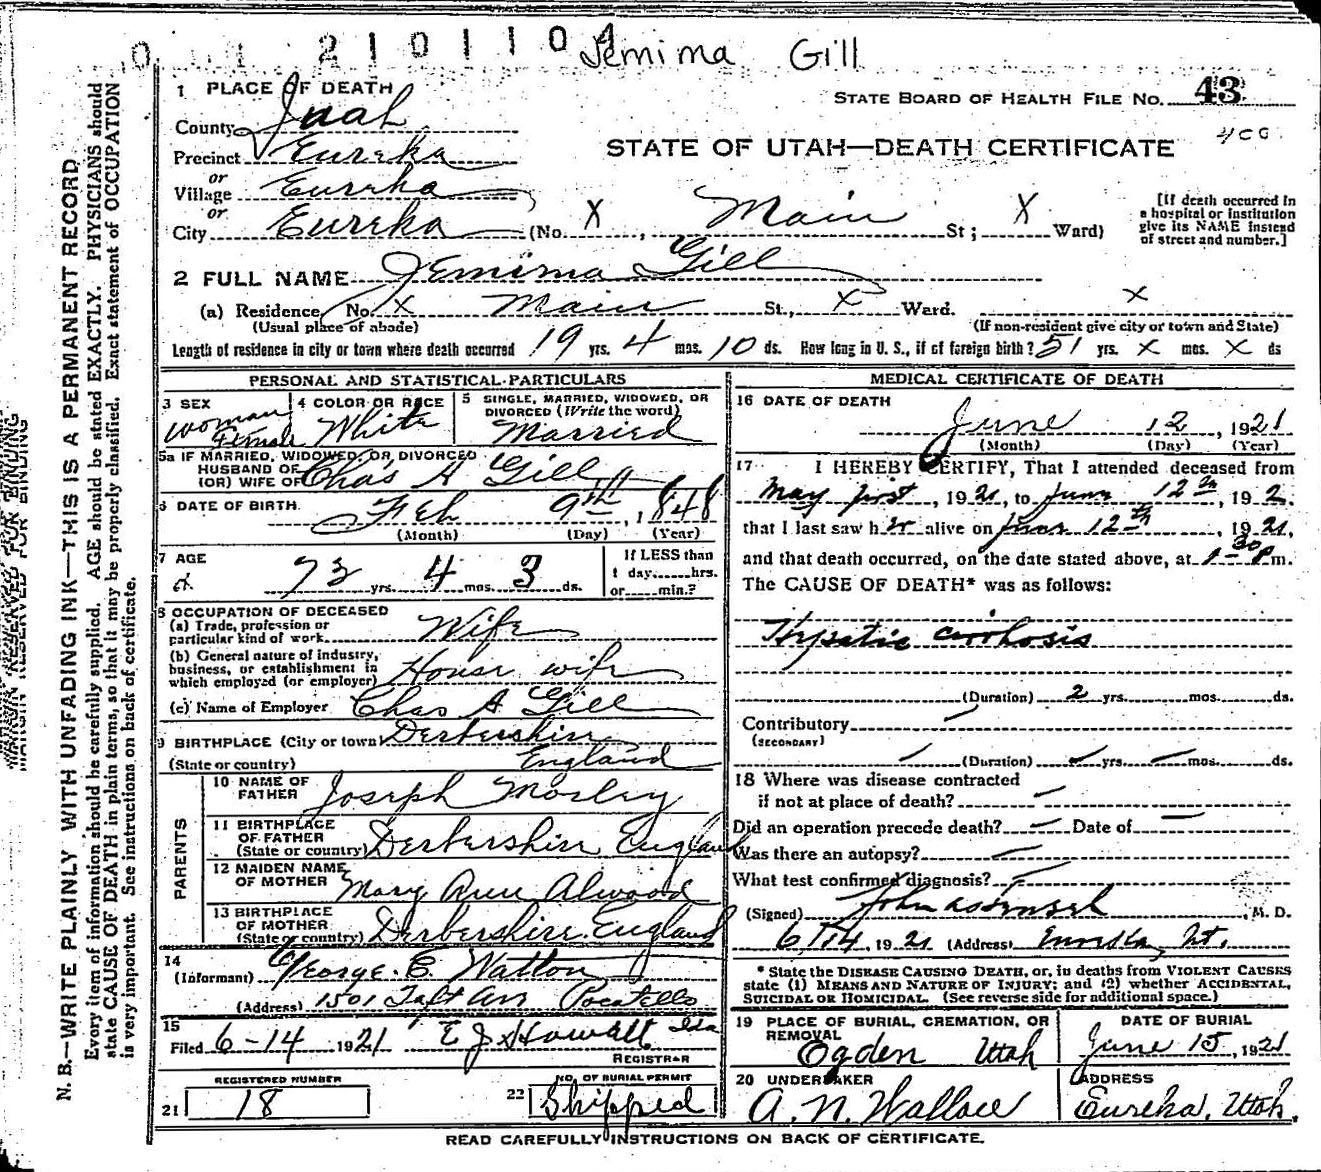 0 1 2 1 0 1 1 0 4 Jemima Gill
1 PLACE OF DEATH
STATE BOARD OF HEALTH FILE No. 43
County Juab
400
Precinct Eureka
STATE OF UTAH—DEATH CERTIFICATE
or
Village Eureka
or
City Eureka (No. X, Main St; X Ward)
[If death occurred in
a hospital or institution
give its NAME instead
of street and number.]
2 FULL NAME Jemima Gill
(a) Residence, No. X Main St., X Ward. X
(Usual place of abode) (If non-resident give city or town and State)
Length of residence in city or town where death occurred 19 yrs. 4 mos. 10 ds. How long in U. S., if of foreign birth? 51 yrs. X mos. X ds
PERSONAL AND STATISTICAL PARTICULARS
3 SEX
woman
Female
4 COLOR OR RACE
White
5 SINGLE, MARRIED, WIDOWED, OR
DIVORCED (Write the word)
Married
5a IF MARRIED, WIDOWED, OR DIVORCED
HUSBAND OF
(OR) WIFE OF Chas A Gill
6 DATE OF BIRTH Feb 9th, 1848
(Month) (Day) (Year)
7 AGE
73 yrs. 4 mos. 3 ds.
If LESS than
1 day......hrs.
or......min.?
8 OCCUPATION OF DECEASED
(a) Trade, profession or
particular kind of work Wife
(b) General nature of industry,
business, or establishment in
which employed (or employer) House wife
(c) Name of Employer Chas A Gill
9 BIRTHPLACE (City or town) Derbershire
(State or country) England
PARENTS
10 NAME OF
FATHER Joseph Mosley
11 BIRTHPLACE
OF FATHER
(State or country) Derbershire England
12 MAIDEN NAME
OF MOTHER Mary Ann Alwood
13 BIRTHPLACE
OF MOTHER
(State or country) Derbershire. England
14
(Informant) George. C. Watton
(Address) 1501 Taft Av Pocatello
Ida
15
Filed 6-14 1921 E J Howatt
REGISTRAR
REGISTERED NUMBER
21 18
NO. OF BURIAL PERMIT
22 Shipped
MEDICAL CERTIFICATE OF DEATH
16 DATE OF DEATH
June 12, 1921
(Month) (Day) (Year)
17 I HEREBY CERTIFY, That I attended deceased from
May first, 1921, to June 12th, 192.
that I last saw her alive on June 12th, 1921,
and that death occurred, on the date stated above, at 1-30 P m.
The CAUSE OF DEATH* was as follows:
Hypatic cirrhosis
(Duration) 2 yrs. mos. ds.
Contributory
(SECONDARY)
(Duration) yrs. mos. ds.
18 Where was disease contracted
if not at place of death?
Did an operation precede death? Date of
Was there an autopsy?
What test confirmed diagnosis?
(Signed) John , M. D.
6/14, 1921 (Address) Eureka, Ut.
* State the DISEASE CAUSING DEATH, or, in deaths from VIOLENT CAUSES
state (1) MEANS AND NATURE OF INJURY; and (2) whether ACCIDENTAL,
SUICIDAL OR HOMICIDAL. (See reverse side for additional space.)
19 PLACE OF BURIAL, CREMATION, OR
REMOVAL
Ogden Utah
DATE OF BURIAL
June 15, 1921
20 UNDERTAKER
A. N. Wallace
ADDRESS
Eureka, Utah.
READ CAREFULLY INSTRUCTIONS ON BACK OF CERTIFICATE.
MARGIN RESERVED FOR BINDING
N. B.—WRITE PLAINLY WITH UNFADING INK—THIS IS A PERMANENT RECORD
Every item of information should be carefully supplied. AGE should be stated EXACTLY. PHYSICIANS should
state CAUSE OF DEATH in plain terms, so that it may be properly classified. Exact statement of OCCUPATION
is very important. See instructions on back of certificate.